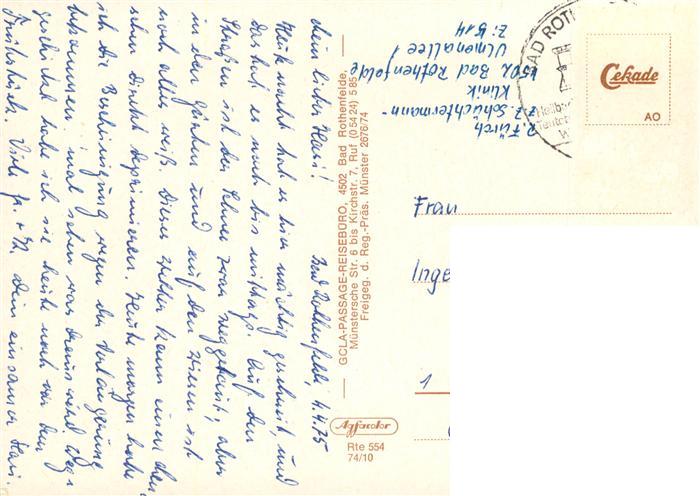 Bad Rothenfelde, 4.4.75
Mein lieber Hasi!
Heute nacht hat es hier mächtig geschneit, und
das tat es noch bis mittags. Auf den
Straßen ist der Schnee zwar weggetaut, aber
in den Gärten und auf den Wiesen ist
noch alles weiß. Dieses Wetter kann einen
schon direkt deprimieren. Heute morgen habe
ich die Bescheinigung wegen der Verlängerung
bekommen. Mal sehen was draus wird. Weg-
geschickt habe ich sie heute noch vor dem
Frühstück. Viele Gr. + Dein einsamer Hasi.
GCLA-PASSAGE-REISEBÜRO, 4502 Bad Rothenfelde,
Münstersche Str. 6 bis Kirchstr. 7, Ruf (0 54 24) 5 85
Freigeg. d. Reg.-Präs. Münster 2676/74
Agfacolor
Rte 554
74/10
z. Z. Schüchtermann-
Klinik
4502 Bad Rothenfelde
Ulmenallee 1
Z: 514
BAD ROTH
Cekade
AO
Frau
Inge
1